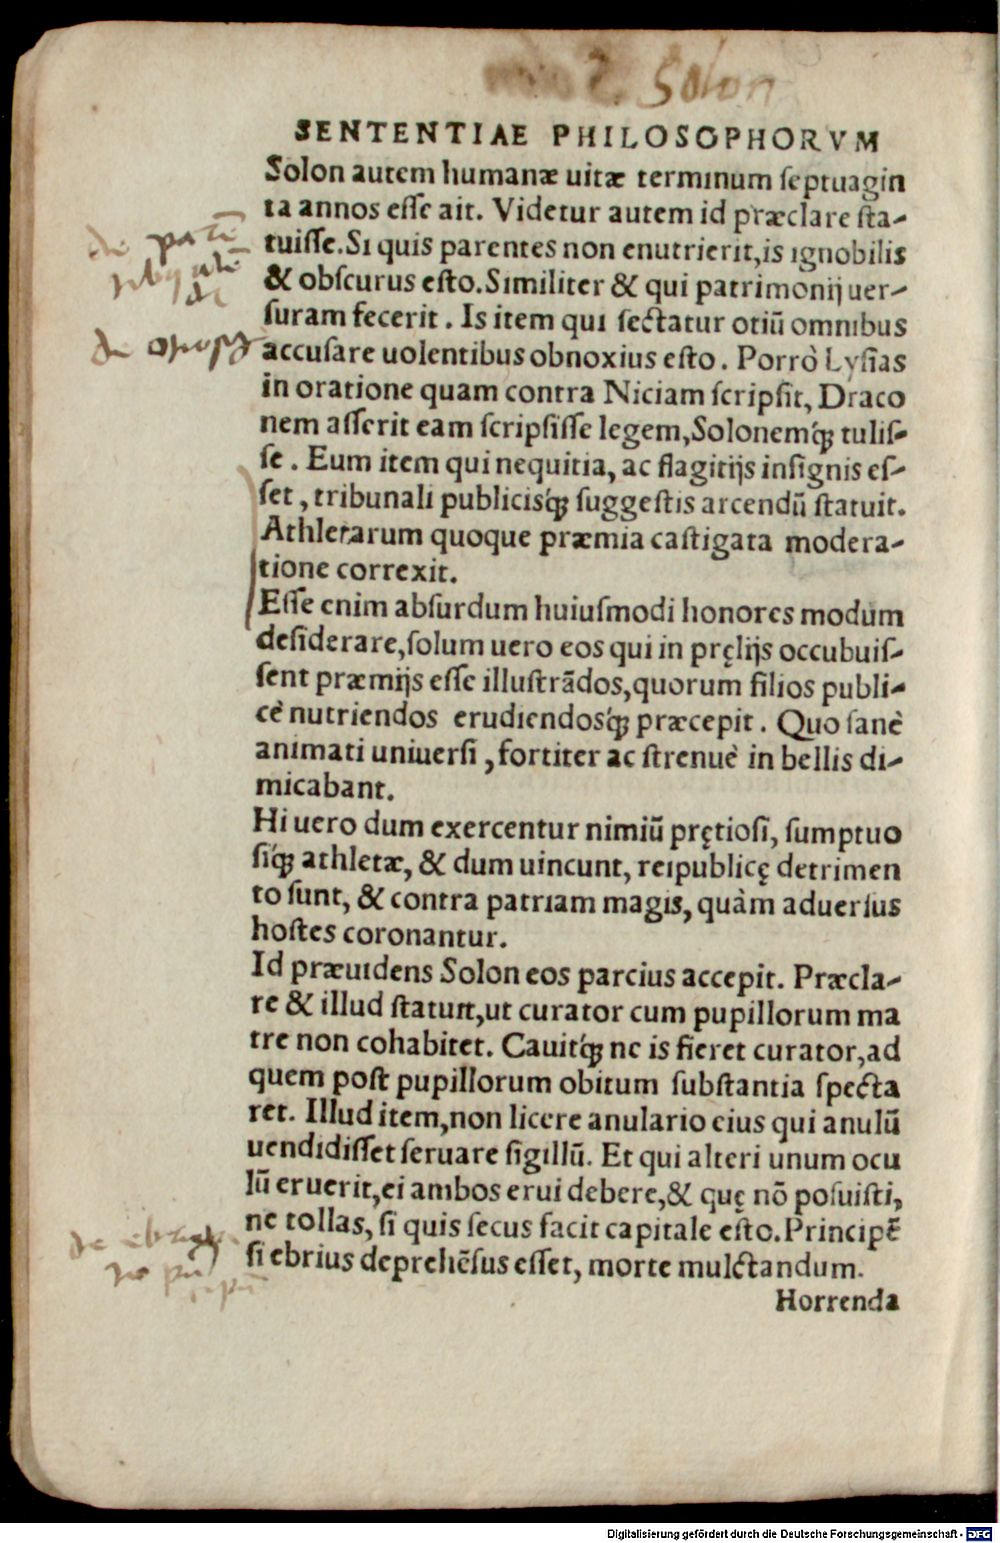 Solon
SENTENTIAE PHILOSOPHORVM
Solon autem humanæ uitæ terminum ſeptuagin
ta annos eſſe ait. Videtur autem id præclare ſta-
tuiſſe. Si quis parentes non enutrierit, is ignobilis
& obſcurus eſto. Similiter & qui patrimonij uer-
ſuram fecerit. Is item qui ſectatur otiũ omnibus
accuſare uolentibus obnoxius eſto. Porrò Lyſias
in oratione quam contra Niciam ſcripſit, Draco
nem aſſerit eam ſcripſiſſe legem, Solonemq́ꝫ tuliſ-
ſe. Eum item qui nequitia, ac flagitijs inſignis eſ-
ſet, tribunali publicisq́ꝫ ſuggeſtis arcendũ ſtatuit.
Athletarum quoque præmia caſtigata modera-
tione correxit.
Eſſe enim abſurdum huiuſmodi honores modum
deſiderare, ſolum uero eos qui in prȩlijs occubuiſ-
ſent præmijs eſſe illuſtrãdos, quorum filios publi-
cè nutriendos erudiendosq́ꝫ præcepit. Quo ſanè
animati uniuerſi, fortiter ac ſtrenuè in bellis di-
micabant.
Hi uero dum exercentur nimiũ prȩtioſi, ſumptuo
ſiq́ꝫ athletæ, & dum uincunt, reipublicȩ detrimen
to ſunt, & contra patriam magis, quàm aduerſus
hoſtes coronantur.
Id præuidens Solon eos parcius accepit. Præcla-
re & illud ſtatuit, ut curator cum pupillorum ma
tre non cohabitet. Cauitq́ꝫ ne is fieret curator, ad
quem poſt pupillorum obitum ſubſtantia ſpecta
ret. Illud item, non licere anulario eius qui anulũ
uendidiſſet ſeruare ſigillũ. Et qui alteri unum ocu
lũ eruerit, ei ambos erui debere, & quȩ nõ poſuiſti,
ne tollas, ſi quis ſecus facit capitale eſto. Principẽ
ſi ebrius deprehẽſus eſſet, morte mulctandum.
Horrenda
Digitalisierung gefördert durch die Deutsche Forschungsgemeinschaft - DFG